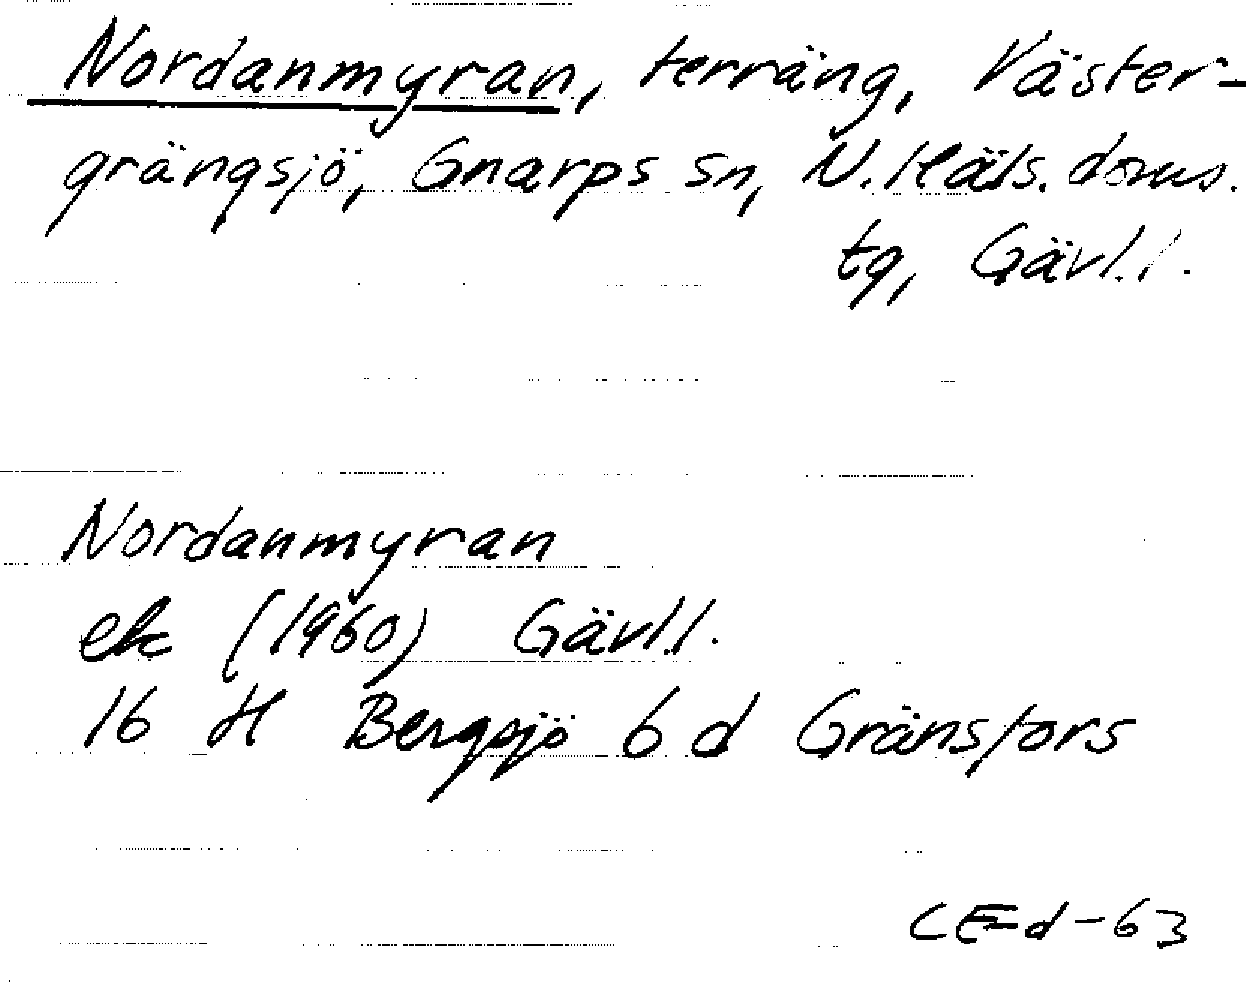 Nordanmyran, terräng, Väster-
grängsjö, Gnarps sn, N. Häls. doms.
tg, Gävl.l.
Nordanmyran
ek (1960) Gävl.l.
16 H Bergsjö 6 d Gränsfors
CEd-63